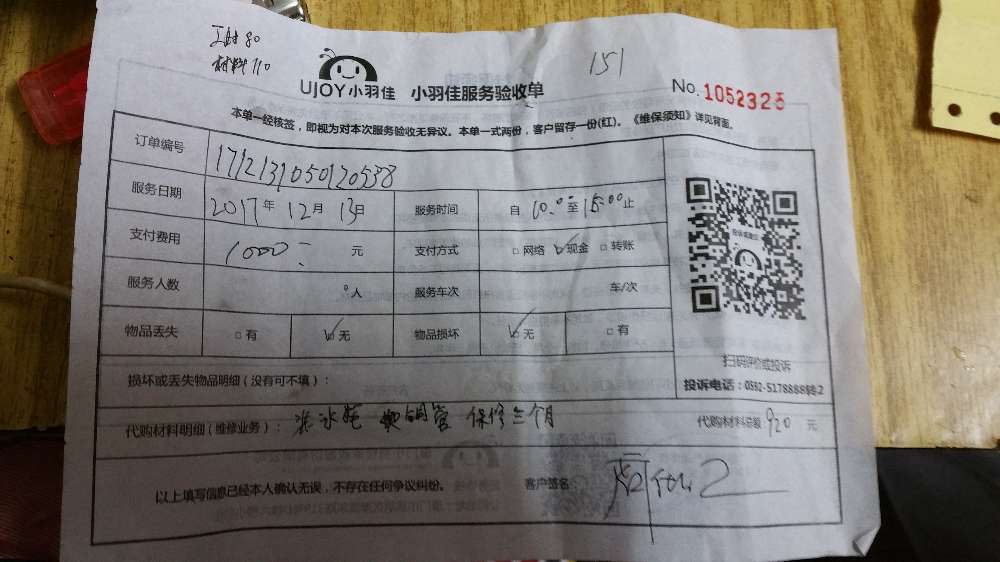 工时80
材料110
151
UJOY小羽佳 小羽佳服务验收单
No. 1052325
本单一经核签，即视为对本次服务验收无异议。本单一式两份，客户留存一份(红)。《维保须知》详见背面。
订单编号 1712131050120538
服务日期 2017年12月13日 服务时间 自10:00至15:00止
支付费用 1000 元 支付方式 □网络 □现金 □转账
服务人数 人 服务车次 车/次
物品丢失 □有 □无 物品损坏 □无 □有
扫码评价或投诉
损坏或丢失物品明细（没有可不填）：
投诉电话：0592-5178888转2
代购材料明细（维修业务）： 铜管 保修三个月 代购材料总额 920 元
以上填写信息已经本人确认无误，不存在任何争议纠纷。 客户签名：